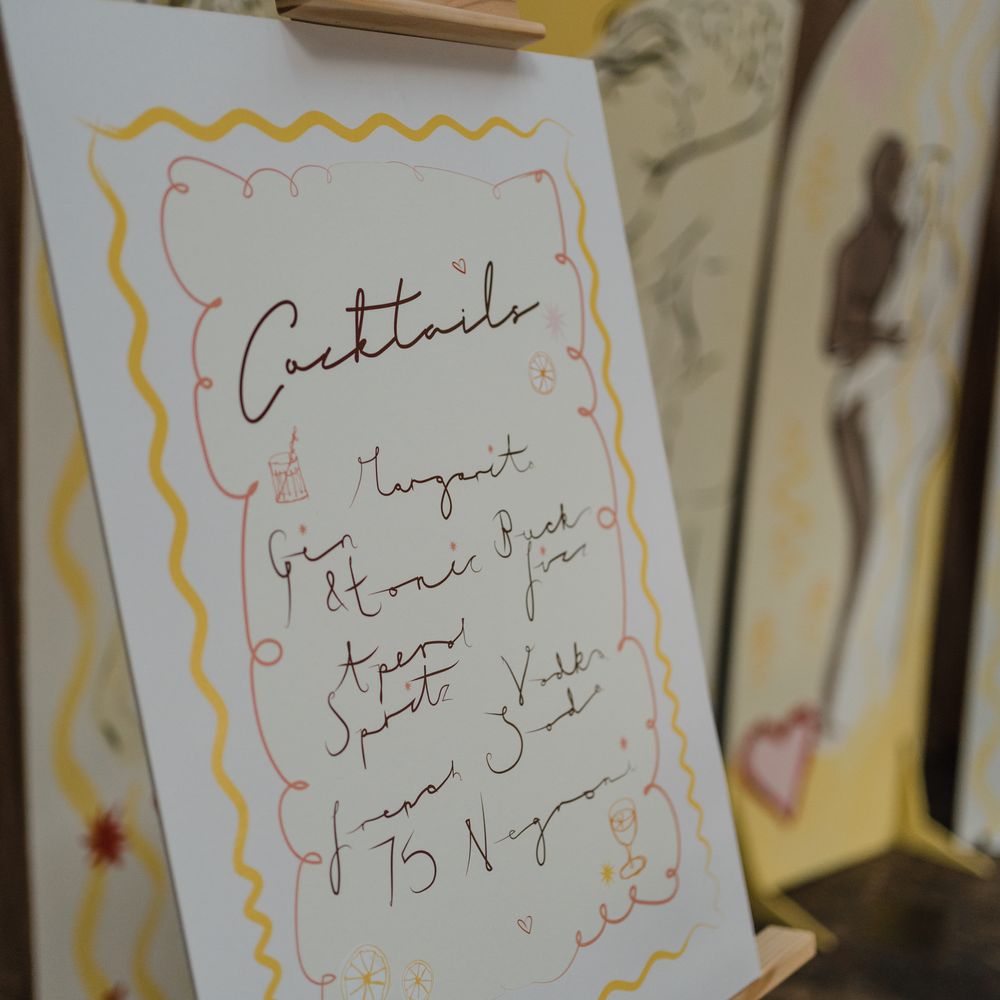 Cocktails
Margarita
Gin
& tonic
Buck
fizz
Aperol
Spritz
Vodka
Soda
french
75
Negroni